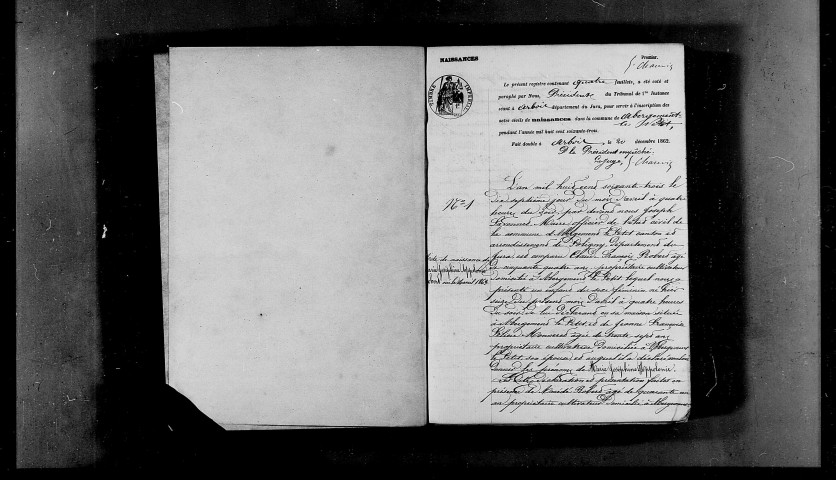 NAISSANCES
Premier.
Le présent registre contenant quatre feuillets, a été coté et
paraphé par Nous, Président du Tribunal de 1re Instance
séant à Arbois département du Jura, pour servir à l'inscription des
actes civils de naissances dans la commune de Abergement
le Petit,
pendant l'année mil huit cent soixante-trois.
Fait double à Arbois, le 20 décembre 1862.
P. le Président empêché
TIMBRE IMPERIAL
No 1
L'an mil huit cent soixante-trois le
dix septième jour du mois d'avril à quatre
heures du soir par devant nous Joseph
Maire officier de l'état civil de
la commune d'Abergement le Petit canton et
arrondissement de Poligny, Département du
Jura est comparu Claude François Robert âgé
de cinquante quatre ans, propriétaire cultivateur
domicilié à Abergement le Petit lequel nous a
présenté un enfant du sexe féminin né hier
seize du présent mois d'avril à quatre heures
du soir de lui déclarant en sa maison située
à Abergement le Petit et de Jeanne Françoise
âgée de trente sept ans
propriétaire cultivatrice domiciliée à Abergement
le Petit, son épouse et auquel il a déclaré vouloir
donner les prénoms de Marie Josephine Appolonie.
déclaration et présentation faites en
présence de Robert âgé de quarante un
an propriétaire cultivateur domicilié à Abergement
Acte de naissance de
Marie Josephine Appolonie
Robert 1863